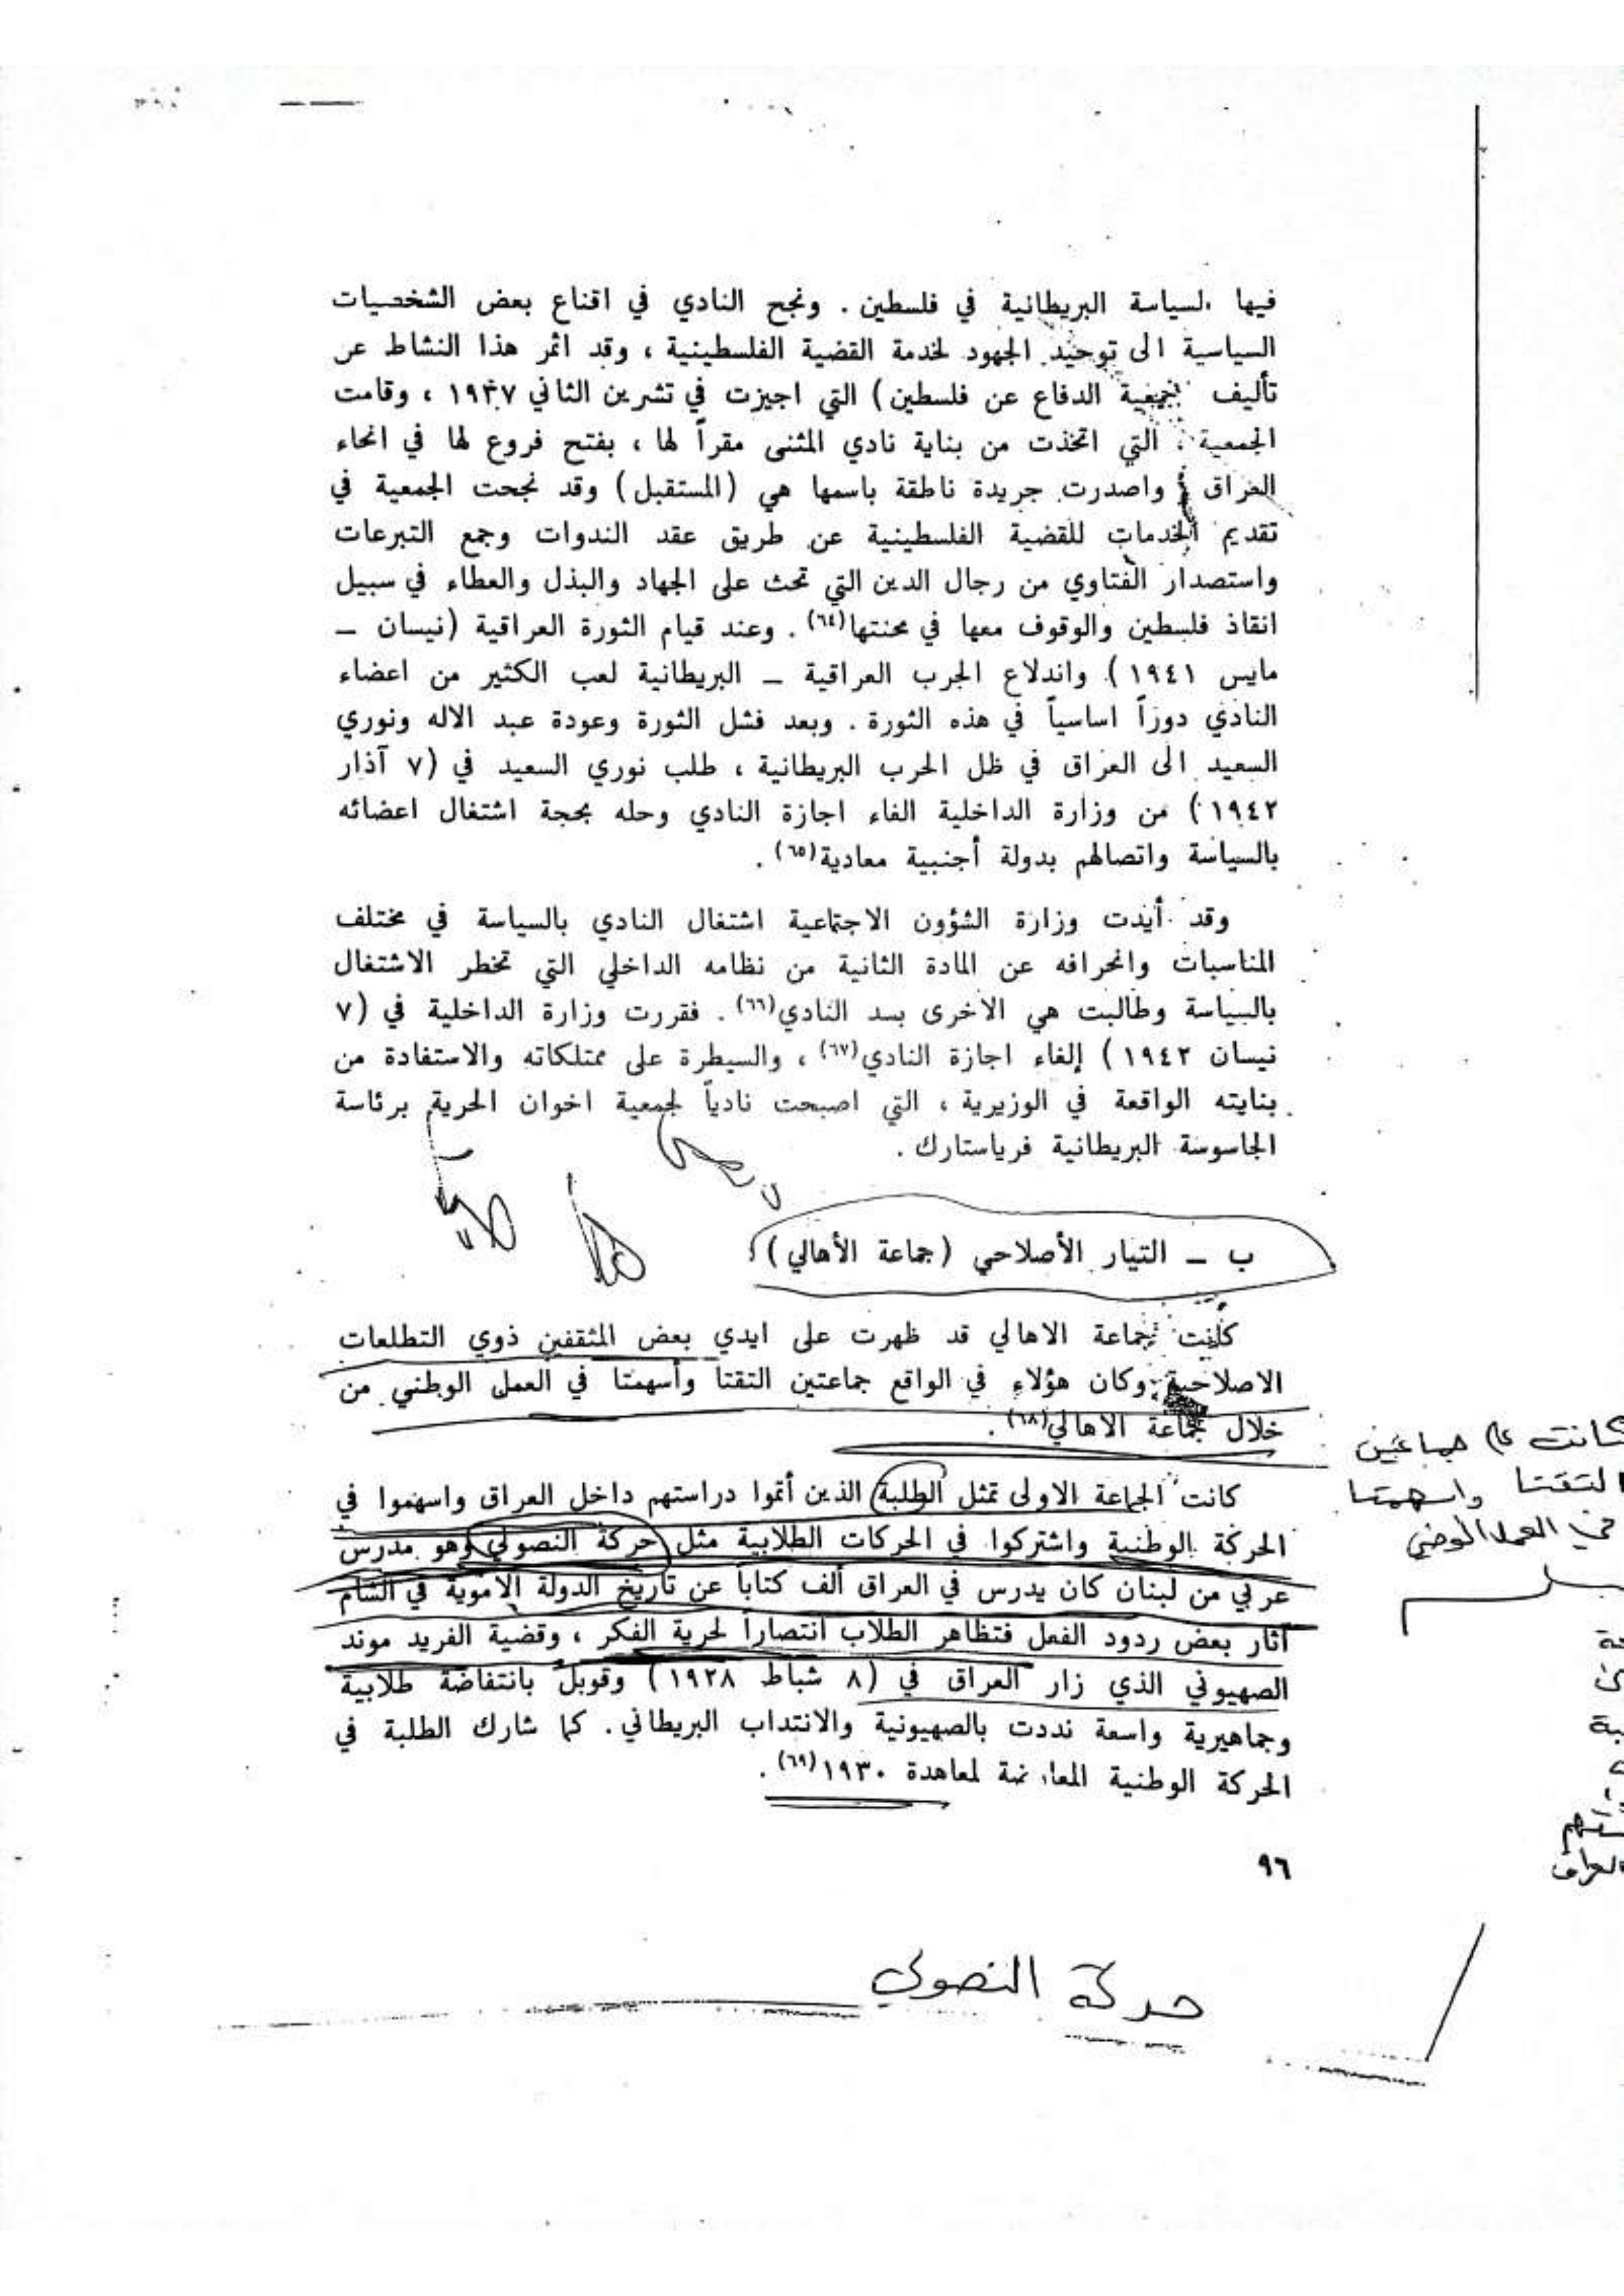 فيها السياسة البريطانية في فلسطين . ونجح النادي في اقناع بعض الشخصيات
السياسية الى توحيد الجهود لخدمة القضية الفلسطينية ، وقد اثمر هذا النشاط عن
تأليف (جمعية الدفاع عن فلسطين) التي اجيزت في تشرين الثاني ١٩٣٧ ، وقامت
الجمعية ، التي اتخذت من بناية نادي المثنى مقراً لها ، بفتح فروع لها في انحاء
العراق واصدرت جريدة ناطقة باسمها هي (المستقبل) وقد نجحت الجمعية في
تقديم الخدمات للقضية الفلسطينية عن طريق عقد الندوات وجمع التبرعات
واستصدار الفتاوي من رجال الدين التي تحث على الجهاد والبذل والعطاء في سبيل
انقاذ فلسطين والوقوف معها في محنتها(٦٤) . وعند قيام الثورة العراقية (نيسان ــ
مايس ١٩٤١) واندلاع الحرب العراقية ــ البريطانية لعب الكثير من اعضاء
النادي دوراً اساسياً في هذه الثورة . وبعد فشل الثورة وعودة عبد الاله ونوري
السعيد الى العراق في ظل الحرب البريطانية ، طلب نوري السعيد في (٧ آذار
١٩٤٢) من وزارة الداخلية الغاء اجازة النادي وحله بحجة اشتغال اعضائه
بالسياسة واتصالهم بدولة أجنبية معادية(٦٥) .
وقد أيدت وزارة الشؤون الاجتماعية اشتغال النادي بالسياسة في مختلف
المناسبات وانحرافه عن المادة الثانية من نظامه الداخلي التي تحظر الاشتغال
بالسياسة وطالبت هي الاخرى بسد النادي(٦٦) . فقررت وزارة الداخلية في (٧
نيسان ١٩٤٢) إلغاء اجازة النادي(٦٧) ، والسيطرة على ممتلكاته والاستفادة من
بنايته الواقعة في الوزيرية ، التي اصبحت نادياً لجمعية اخوان الحرية برئاسة
الجاسوسة البريطانية فرياستارك .
ب ــ التيار الأصلاحي (جماعة الأهالي)
كانت جماعة الاهالي قد ظهرت على ايدي بعض المثقفين ذوي التطلعات
الاصلاحية وكان هؤلاء في الواقع جماعتين التقتا وأسهمتا في العمل الوطني من
خلال جماعة الاهالي(٦٨) .
كانت جماعتين
التقتا واسهمتا
في العمل الوطني
كانت الجماعة الاولى تمثل الطلبة الذين أتموا دراستهم داخل العراق واسهموا في
الحركة الوطنية واشتركوا في الحركات الطلابية مثل حركة النصولي وهو مدرس
عربي من لبنان كان يدرس في العراق ألف كتاباً عن تاريخ الدولة الأموية في الشام
أثار بعض ردود الفعل فتظاهر الطلاب انتصاراً لحرية الفكر ، وقضية الفريد موند
الصهيوني الذي زار العراق في (٨ شباط ١٩٢٨) وقوبل بانتفاضة طلابية
وجماهيرية واسعة نددت بالصهيونية والانتداب البريطاني . كما شارك الطلبة في
الحركة الوطنية المعارضة لمعاهدة ١٩٣٠(٦٩) .
٩٦
حركة النصولي